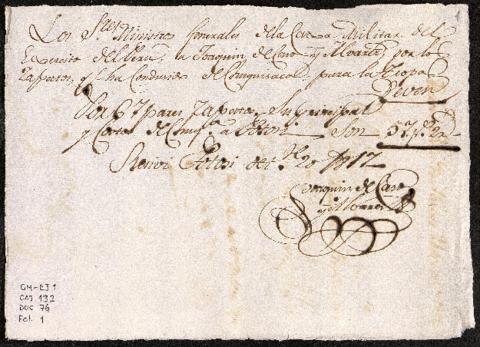 Los S.res Ministros Generales de la Caxa Militar del
Exercito del Peru a Joaquin de Caso y Alvarez por los
Zapatos, y su Conduccion de Chuquisaca, para la Tropa
Deven
Por 67 pares Zapatos Su principal
y Costos de a Potosi Son 57 p.s 2 r.s
Recivi Potosi Oct.re 20 1812
Joaquin de Caso
y Alvarez
GM-EJ 1
CAJ 132
DOC 76
Fol. 1